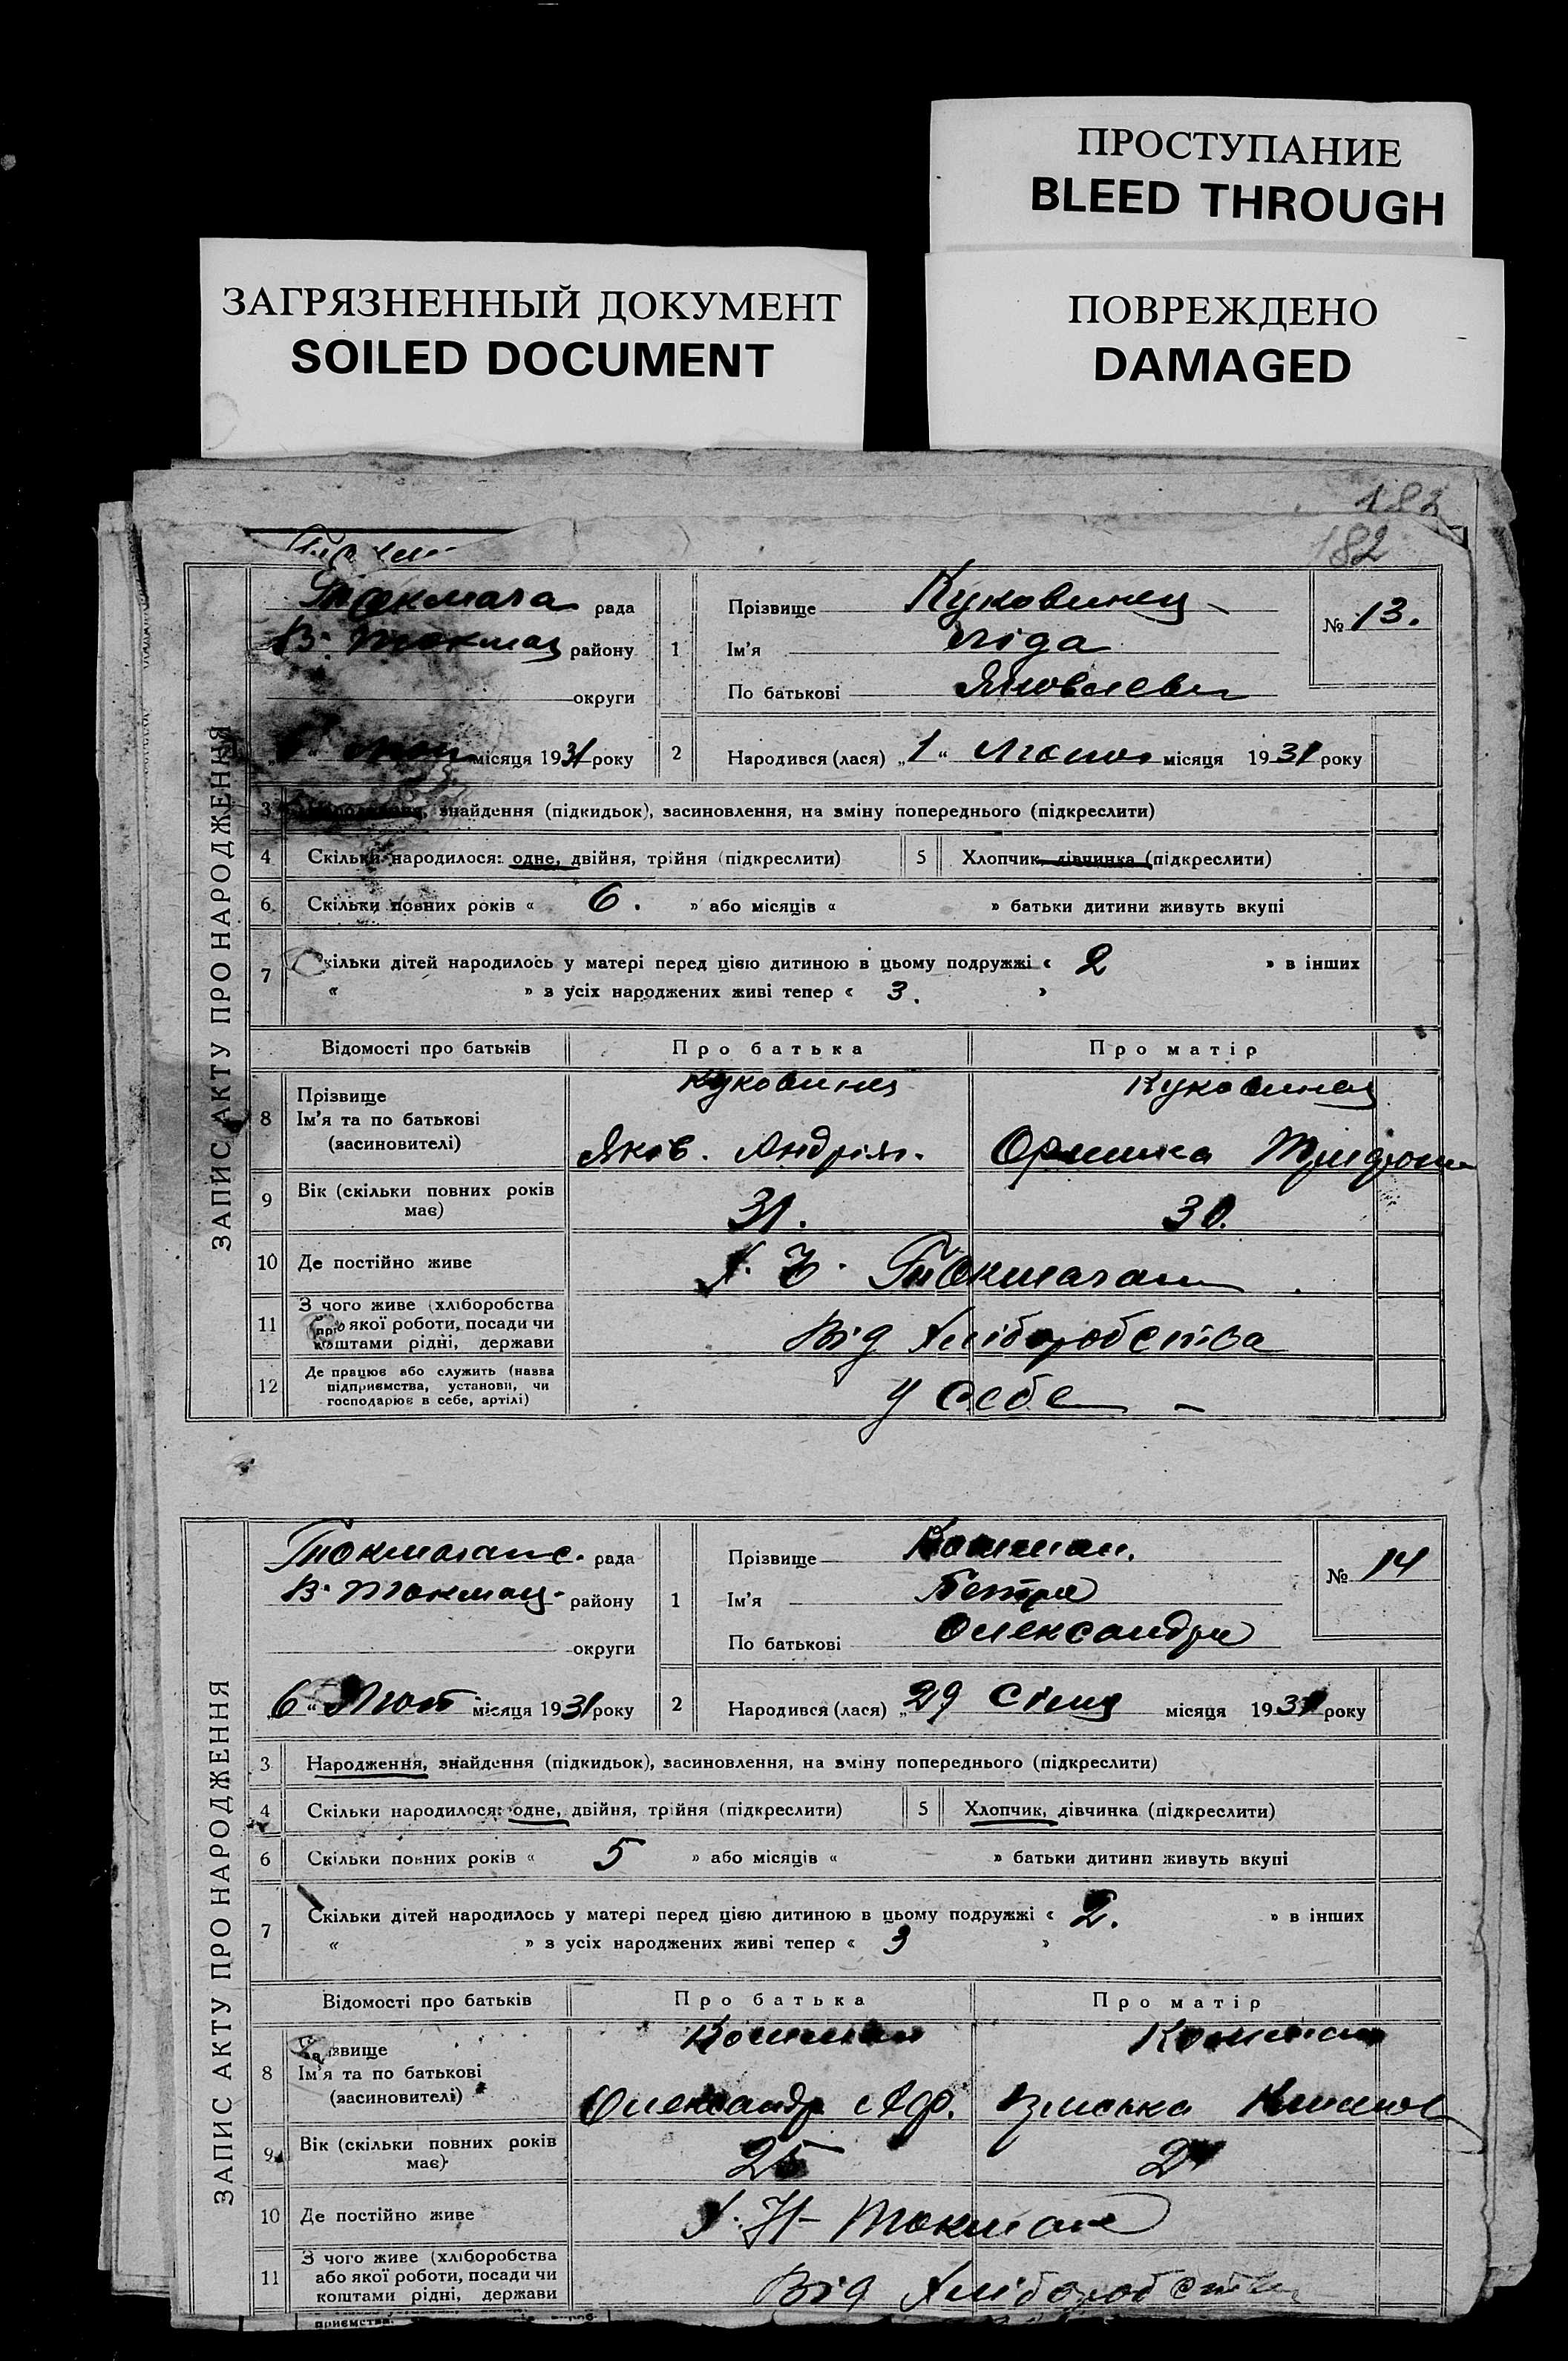 ПРОСТУПАНИЕ
BLEED THROUGH
ЗАГРЯЗНЕННЫЙ ДОКУМЕНТ
SOILED DOCUMENT
ПОВРЕЖДЕНО
DAMAGED
182
182
ЗАПИС АКТУ ПРО НАРОДЖЕННЯ
рада
В. Токмац району
округи
місяця 1931 року
1
Прізвище Куковинец
Ім'я Ліда
По батькові Яковлевн
№ 13.
2
Народився (лася) „1“ місяця 1931 року
3 знайдення (підкидьок), засиновлення, на зміну попереднього (підкреслити)
4 Скільки народилося: одне, двійня, трійня (підкреслити)
5 Хлопчик, дівчинка (підкреслити)
6 Скільки повних років « 6. » або місяців « » батьки дитини живуть вкупі
7 Скільки дітей народилось у матері перед цією дитиною в цьому подружжі « 2 » в інших
« » з усіх народжених живі тепер « 3. »
Відомості про батьків Про батька Про матір
8 Прізвище Куковинец Куковинец
Ім'я та по батькові
(засиновителі) Яков. Андрія.
9 Вік (скільки повних років має) 31. 30.
10 Де постійно живе
11 З чого живе (хліборобства
або якої роботи, посади чи
коштами рідні, держави Від Хліборобства
12 Де працює або служить (назва
підприємства, установи, чи
господарює в себе, артілі) У себе
ЗАПИС АКТУ ПРО НАРОДЖЕННЯ
рада
В. Токмац. району
округи
„6“ Лют місяця 1931 року
1
Прізвище Кошман.
Ім'я Петро
По батькові Олександр
№ 14
2
Народився (лася) „29 Січня місяця 1931 року
3 Народження, знайдення (підкидьок), засиновлення, на зміну попереднього (підкреслити)
4 Скільки народилося: одне, двійня, трійня (підкреслити)
5 Хлопчик, дівчинка (підкреслити)
6 Скільки повних років « 5 » або місяців « » батьки дитини живуть вкупі
7 Скільки дітей народилось у матері перед цією дитиною в цьому подружжі « 2. » в інших
« » з усіх народжених живі тепер « 3 »
Відомості про батьків Про батька Про матір
8 Прізвище Кошман Кошман
Ім'я та по батькові
(засиновителі) Олександр
9 Вік (скільки повних років має) 25
10 Де постійно живе
11 З чого живе (хліборобства
або якої роботи, посади чи
коштами рідні, держави Від Хліборобств